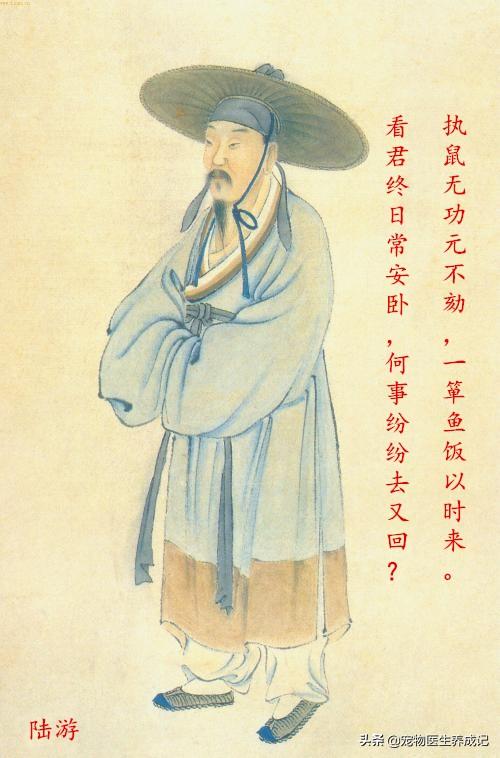 执鼠无功元不劾，一箪鱼饭以时来。
看君终日常安卧，何事纷纷去又回？
陆游
头条 @宠物医生养成记